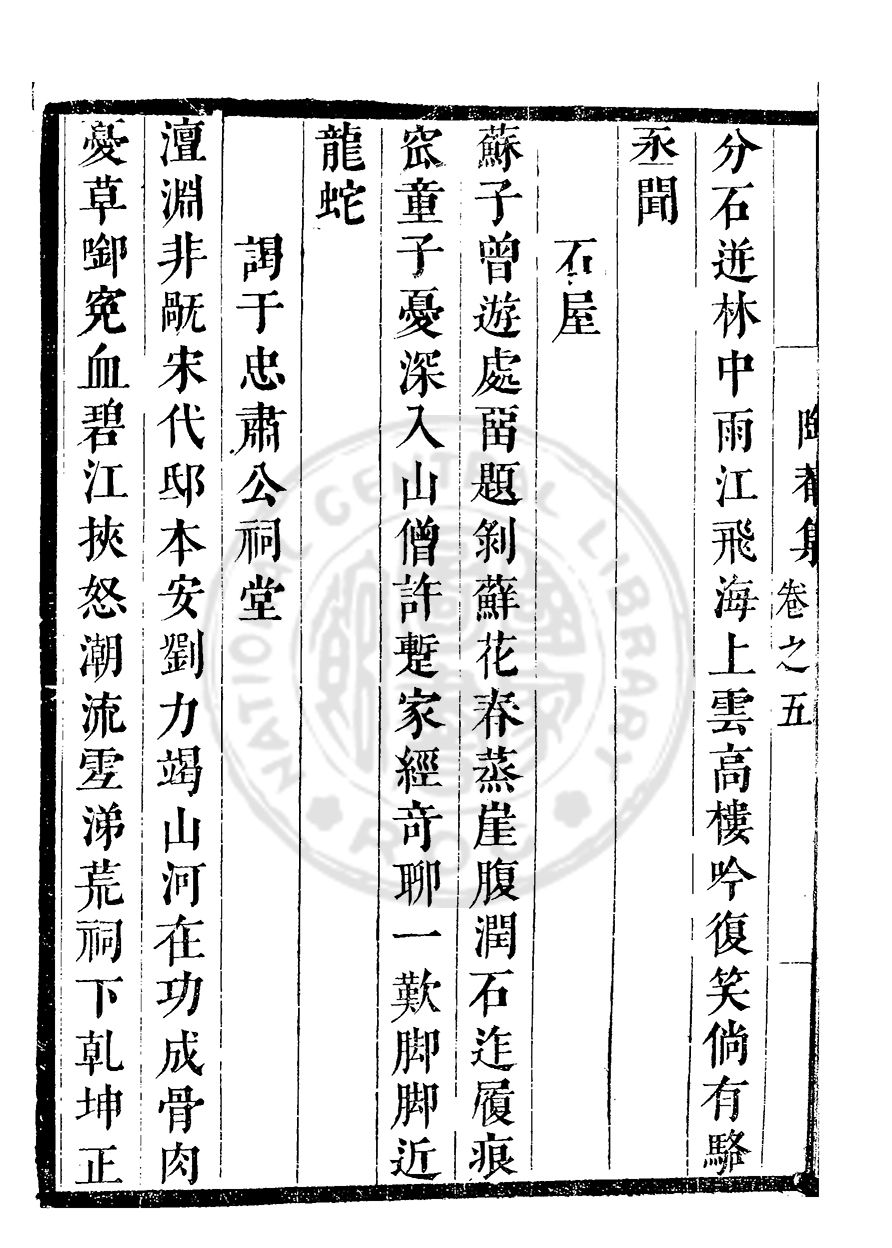 卷之五
分石迸林中雨江飛海上雲高樓吟復笑倘有駱
丞聞
石屋
蘇子曾遊處畱題剝蘚花春蒸崖腹潤石迮履痕
窊童子憂深入山僧許蹔家經奇聊一歎脚脚近
龍蛇
謁于忠肅公祠堂
澶淵非敵宋代邸本安劉力竭山河在功成骨肉
憂草啣寃血碧江挾怒潮流雪涕荒祠下乹坤正
NATIONAL CENTRAL LIBRARY